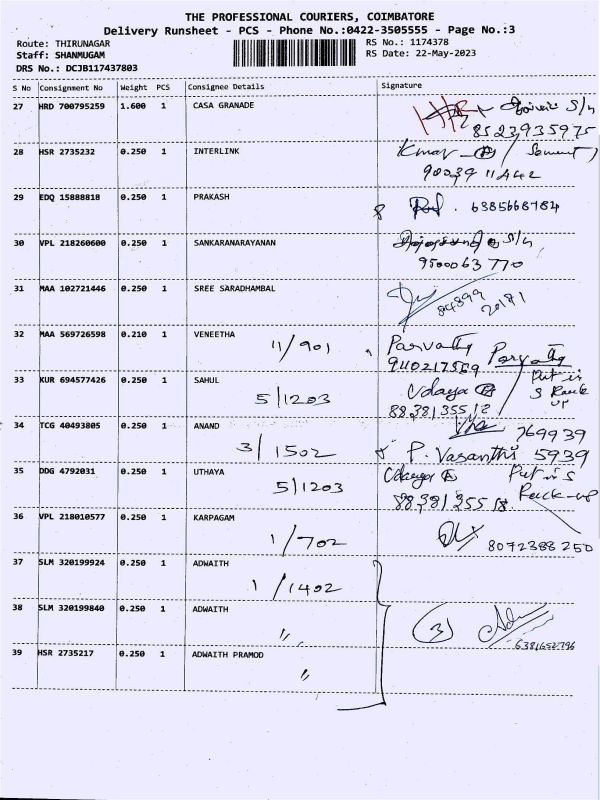 THE PROFESSIONAL COURIERS, COIMBATORE
Delivery Runsheet - PCS - Phone No.:0422-3505555 - Page No.:3
Route: THIRUNAGAR
Staff: SHANMUGAM
DRS No.: DCJB117437803
RS No.: 1174378
RS Date: 22-May-2023
S No Consignment No Weight PCS Consignee Details Signature
27 HRD 700795259 1.600 1 CASA GRANADE
S/n
8523935975
28 HSR 2735232 0.250 1 INTERLINK
Kmar
29 EDQ 15888818 0.250 1 PRAKASH
6385668784
30 VPL 218260600 0.250 1 SANKARANARAYANAN
S/n
9500063770
31 MAA 102721446 0.250 1 SREE SARADHAMBAL
84899
20171
32 MAA 569726598 0.210 1 VENEETHA 11/901
Parvathy Parvathy
940217569
33 KUR 694577426 0.250 1 SAHUL 5/1203
Udaya Put in
S Rack
up
34 TCG 40493805 0.250 1 ANAND 3/1502
769939
P. Vasanthi 5939
35 DDG 4792031 0.250 1 UTHAYA 5/1203
Udaya Put in S
Rack-up
36 VPL 218010577 0.250 1 KARPAGAM 1/702
8072388250
37 SLM 320199924 0.250 1 ADWAITH 1/1402
38 SLM 320199840 0.250 1 ADWAITH "
(3)
6381652796
39 HSR 2735217 0.250 1 ADWAITH PRAMOD "